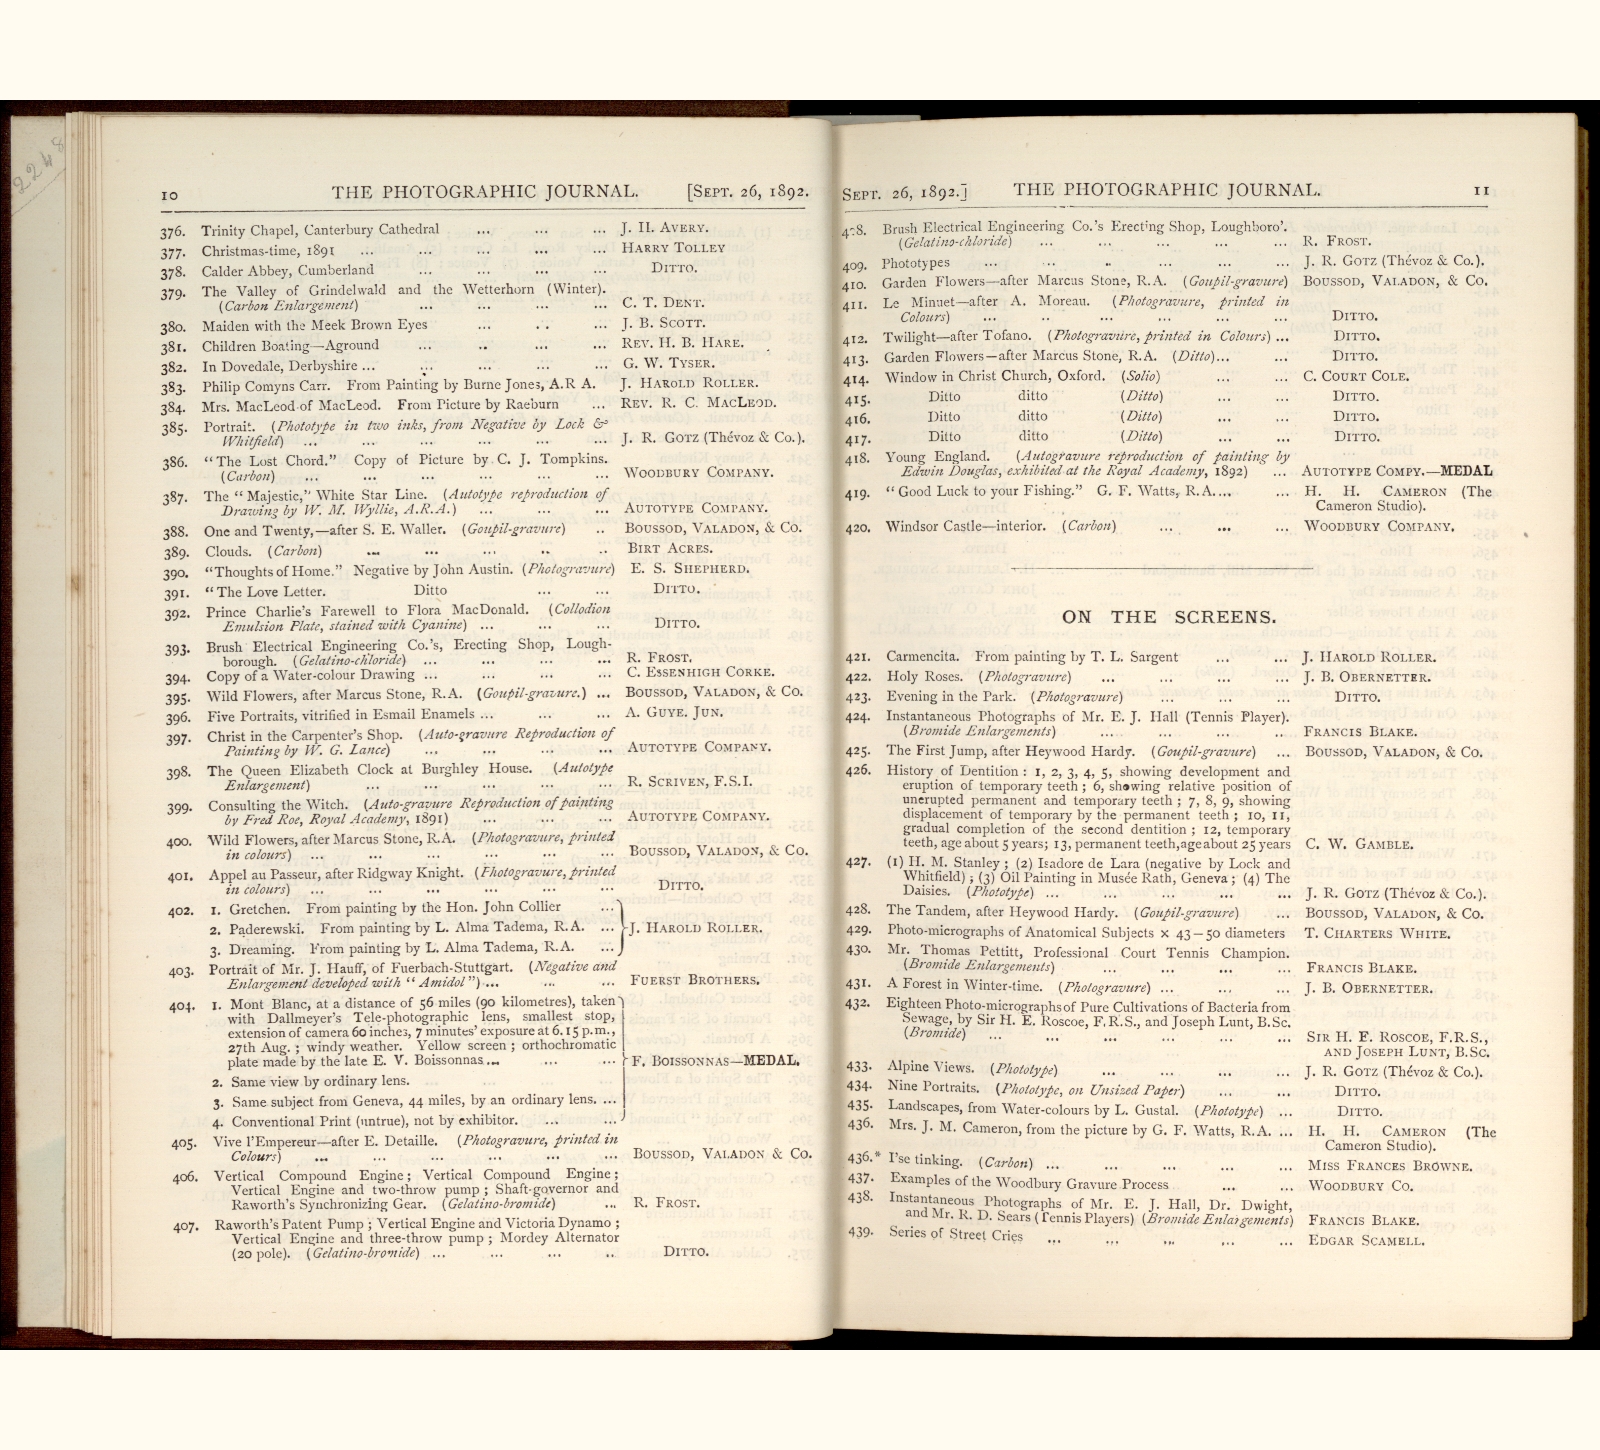 2248
10 THE PHOTOGRAPHIC JOURNAL. [SEPT. 26, 1892.
376. Trinity Chapel, Canterbury Cathedral ... ... ... J. H. AVERY.
377. Christmas-time, 1891 ... ... ... ... ... HARRY TOLLEY
378. Calder Abbey, Cumberland ... ... ... ... DITTO.
379. The Valley of Grindelwald and the Wetterhorn (Winter).
(Carbon Enlargement) ... ... ... ... C. T. DENT.
380. Maiden with the Meek Brown Eyes ... ... ... J. B. SCOTT.
381. Children Boating—Aground ... ... ... ... REV. H. B. HARE.
382. In Dovedale, Derbyshire ... ... ... ... ... G. W. TYSER.
383. Philip Comyns Carr. From Painting by Burne Jones, A.R A. J. HAROLD ROLLER.
384. Mrs. MacLeod of MacLeod. From Picture by Raeburn ... REV. R. C. MACLEOD.
385. Portrait. (Phototype in two inks, from Negative by Lock &
Whitfield) ... ... ... ... ... ... J. R. GOTZ (Thévoz & Co.).
386. "The Lost Chord." Copy of Picture by C. J. Tompkins.
(Carbon) ... ... ... ... ... ... WOODBURY COMPANY.
387. The "Majestic," White Star Line. (Autotype reproduction of
Drawing by W. M. Wyllie, A.R.A.) ... ... ... AUTOTYPE COMPANY.
388. One and Twenty,—after S. E. Waller. (Goupil-gravure) .. BOUSSOD, VALADON, & CO.
389. Clouds. (Carbon) ... ... ... .. .. BIRT ACRES.
390. "Thoughts of Home." Negative by John Austin. (Photogravure) E. S. SHEPHERD.
391. "The Love Letter. Ditto ... ... DITTO.
392. Prince Charlie's Farewell to Flora MacDonald. (Collodion
Emulsion Plate, stained with Cyanine) ... ... ... DITTO.
393. Brush Electrical Engineering Co.'s, Erecting Shop, Lough-
borough. (Gelatino-chloride) ... ... ... ... R. FROST.
394. Copy of a Water-colour Drawing ... ... ... ... C. ESSENHIGH CORKE.
395. Wild Flowers, after Marcus Stone, R.A. (Goupil-gravure.) ... BOUSSOD, VALADON, & CO.
396. Five Portraits, vitrified in Esmail Enamels ... ... ... A. GUYE. JUN.
397. Christ in the Carpenter's Shop. (Auto-gravure Reproduction of
Painting by W. G. Lance) ... ... ... ... AUTOTYPE COMPANY.
398. The Queen Elizabeth Clock at Burghley House. (Autotype
Enlargement) ... ... ... ... ... ... R. SCRIVEN, F.S.I.
399. Consulting the Witch. (Auto-gravure Reproduction of painting
by Fred Roe, Royal Academy, 1891) ... ... ... AUTOTYPE COMPANY.
400. Wild Flowers, after Marcus Stone, R.A. (Photogravure, printed
in colours) ... ... ... ... ... ... BOUSSOD, VALADON, & CO.
401. Appel au Passeur, after Ridgway Knight. (Photogravure, printed
in colours) ... ... ... ... ... ... DITTO.
402. 1. Gretchen. From painting by the Hon. John Collier ...
2. Paderewski. From painting by L. Alma Tadema, R.A. ... J. HAROLD ROLLER.
3. Dreaming. From painting by L. Alma Tadema, R.A. ...
403. Portrait of Mr. J. Hauff, of Fuerbach-Stuttgart. (Negative and
Enlargement developed with "Amidol")... ... ... FUERST BROTHERS.
404. 1. Mont Blanc, at a distance of 56 miles (90 kilometres), taken
with Dallmeyer's Tele-photographic lens, smallest stop,
extension of camera 60 inches, 7 minutes' exposure at 6.15 p.m.,
27th Aug.; windy weather. Yellow screen; orthochromatic
plate made by the late E. V. Boissonnas... ... ... F. BOISSONNAS—MEDAL.
2. Same view by ordinary lens.
3. Same subject from Geneva, 44 miles, by an ordinary lens. ...
4. Conventional Print (untrue), not by exhibitor. ... ...
405. Vive l'Empereur—after E. Detaille. (Photogravure, printed in
Colours) ... ... ... ... ... ... BOUSSOD, VALADON & CO.
406. Vertical Compound Engine; Vertical Compound Engine;
Vertical Engine and two-throw pump; Shaft-governor and
Raworth's Synchronizing Gear. (Gelatino-bromide) ... R. FROST.
407. Raworth's Patent Pump; Vertical Engine and Victoria Dynamo;
Vertical Engine and three-throw pump; Mordey Alternator
(20 pole). (Gelatino-bromide) ... ... ... .. DITTO.
SEPT. 26, 1892.] THE PHOTOGRAPHIC JOURNAL. 11
408. Brush Electrical Engineering Co.'s Erecting Shop, Loughboro'.
(Gelatino-chloride) ... ... ... ... ... R. FROST.
409. Phototypes ... ... .. ... ... ... J. R. GOTZ (Thévoz & Co.).
410. Garden Flowers—after Marcus Stone, R.A. (Goupil-gravure) BOUSSOD, VALADON, & CO.
411. Le Minuet—after A. Moreau. (Photogravure, printed in
Colours) ... .. ... ... ... ... DITTO.
412. Twilight—after Tofano. (Photogravure, printed in Colours) ... DITTO.
413. Garden Flowers—after Marcus Stone, R.A. (Ditto)... ... DITTO.
414. Window in Christ Church, Oxford. (Solio) ... ... C. COURT COLE.
415. Ditto ditto (Ditto) ... ... DITTO.
416. Ditto ditto (Ditto) ... ... DITTO.
417. Ditto ditto (Ditto) ... ... DITTO.
418. Young England. (Autogravure reproduction of painting by
Edwin Douglas, exhibited at the Royal Academy, 1892) ... AUTOTYPE COMPY.—MEDAL
419. "Good Luck to your Fishing." G. F. Watts, R.A.... ... H. H. CAMERON (The
Cameron Studio).
420. Windsor Castle—interior. (Carbon) ... ... ... WOODBURY COMPANY.
ON THE SCREENS.
421. Carmencita. From painting by T. L. Sargent ... ... J. HAROLD ROLLER.
422. Holy Roses. (Photogravure) ... ... ... ... J. B. OBERNETTER.
423. Evening in the Park. (Photogravure) ... ... ... DITTO.
424. Instantaneous Photographs of Mr. E. J. Hall (Tennis Player).
(Bromide Enlargements) ... ... ... .. FRANCIS BLAKE.
425. The First Jump, after Heywood Hardy. (Goupil-gravure) ... BOUSSOD, VALADON, & CO.
426. History of Dentition: 1, 2, 3, 4, 5, showing development and
eruption of temporary teeth; 6, showing relative position of
unerupted permanent and temporary teeth; 7, 8, 9, showing
displacement of temporary by the permanent teeth; 10, 11,
gradual completion of the second dentition; 12, temporary
teeth, age about 5 years; 13, permanent teeth, age about 25 years C. W. GAMBLE.
427. (1) H. M. Stanley; (2) Isadore de Lara (negative by Lock and
Whitfield); (3) Oil Painting in Musée Rath, Geneva; (4) The
Daisies. (Phototype) ... ... ... ... ... J. R. GOTZ (Thévoz & Co.).
428. The Tandem, after Heywood Hardy. (Goupil-gravure) ... BOUSSOD, VALADON, & CO.
429. Photo-micrographs of Anatomical Subjects × 43—50 diameters T. CHARTERS WHITE.
430. Mr. Thomas Pettitt, Professional Court Tennis Champion.
(Bromide Enlargements) ... ... ... ... FRANCIS BLAKE.
431. A Forest in Winter-time. (Photogravure) ... ... ... J. B. OBERNETTER.
432. Eighteen Photo-micrographs of Pure Cultivations of Bacteria from
Sewage, by Sir H. E. Roscoe, F.R.S., and Joseph Lunt, B.Sc.
(Bromide) ... ... ... ... ... ... SIR H. E. ROSCOE, F.R.S.,
AND JOSEPH LUNT, B.SC.
433. Alpine Views. (Phototype) ... ... ... ... J. R. GOTZ (Thévoz & Co.).
434. Nine Portraits. (Phototype, on Unsized Paper) ... ... DITTO.
435. Landscapes, from Water-colours by L. Gustal. (Phototype) ... DITTO.
436. Mrs. J. M. Cameron, from the picture by G. F. Watts, R.A. ... H. H. CAMERON (The
Cameron Studio).
436.* I'se tinking. (Carbon) ... ... ... ... ... MISS FRANCES BROWNE.
437. Examples of the Woodbury Gravure Process ... ... WOODBURY CO.
438. Instantaneous Photographs of Mr. E. J. Hall, Dr. Dwight,
and Mr. R. D. Sears (Tennis Players) (Bromide Enlargements) FRANCIS BLAKE.
439. Series of Street Cries ... ... ... ... ... EDGAR SCAMELL.